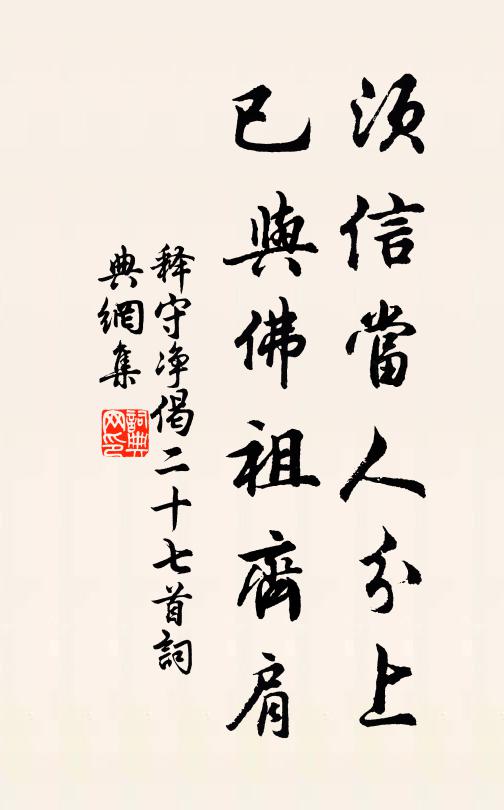 須信當人分上
已與佛祖齊肩
释守净偈二十七首詞
典網集
詞典網印